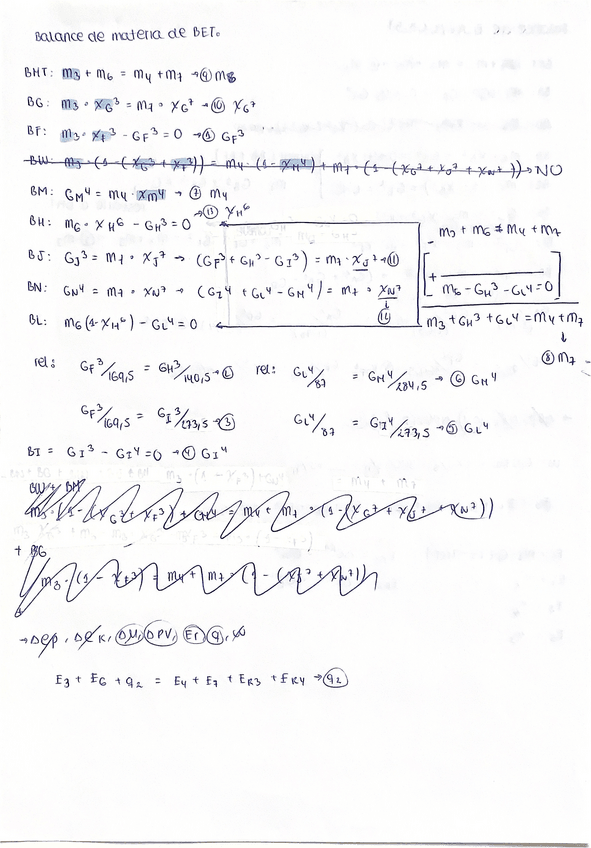 Balance de materia de BET.
BHT: m3 + m6 = m4 + m7 → ⑨ m6
BG: m3 · XG³ = m7 · XG⁷ → ⑩ XG⁷
BF: m3 · XF³ - GF³ = 0 → ① GF³
BW: m3 · (1 - (XG³ + XF³)) = m4 · (1 - XM⁴) + m7 · (1 - (XG⁷ + XJ⁷ + XN⁷)) → NO
BM: GM⁴ = m4 · XM⁴ → ⑦ m4
BH: m6 · XH⁶ - GH³ = 0 → ⑬ XH⁶
BJ: GJ³ = m7 · XJ⁷ → (GF³ + GH³ - GI³) = m7 · XJ⁷ → ⑪
BN: GN⁴ = m7 · XN⁷ → (GI⁴ + GL⁴ - GM⁴) = m7 · XN⁷
↓
⑫
BL: m6 (1 - XH⁶) - GL⁴ = 0
m3 + m6 = m4 + m7
+
m6 - GH³ - GL⁴ = 0
m3 + GH³ + GL⁴ = m4 + m7
↓
⑧ m7
rel: GF³/169,5 = GH³/140,5 → ② rel: GL⁴/87 = GM⁴/284,5 → ⑥ GM⁴
GF³/169,5 = GI³/273,5 → ③ GL⁴/87 = GI⁴/273,5 → ⑤ GL⁴
BI = GI³ - GI⁴ = 0 → ④ GI⁴
BW + BM
m3 · (1 - (XG³ + XF³)) + GM⁴ = m4 + m7 · (1 - (XG⁷ + XJ⁷ + XN⁷))
+ BG
m3 · (1 - XF³) = m4 + m7 · (1 - (XJ⁷ + XN⁷))
→ ΔEp, ΔEk, ΔU, ΔPV, Er, q, w
E3 + E6 + q2 = E4 + E7 + ER3 + ER4 → q2